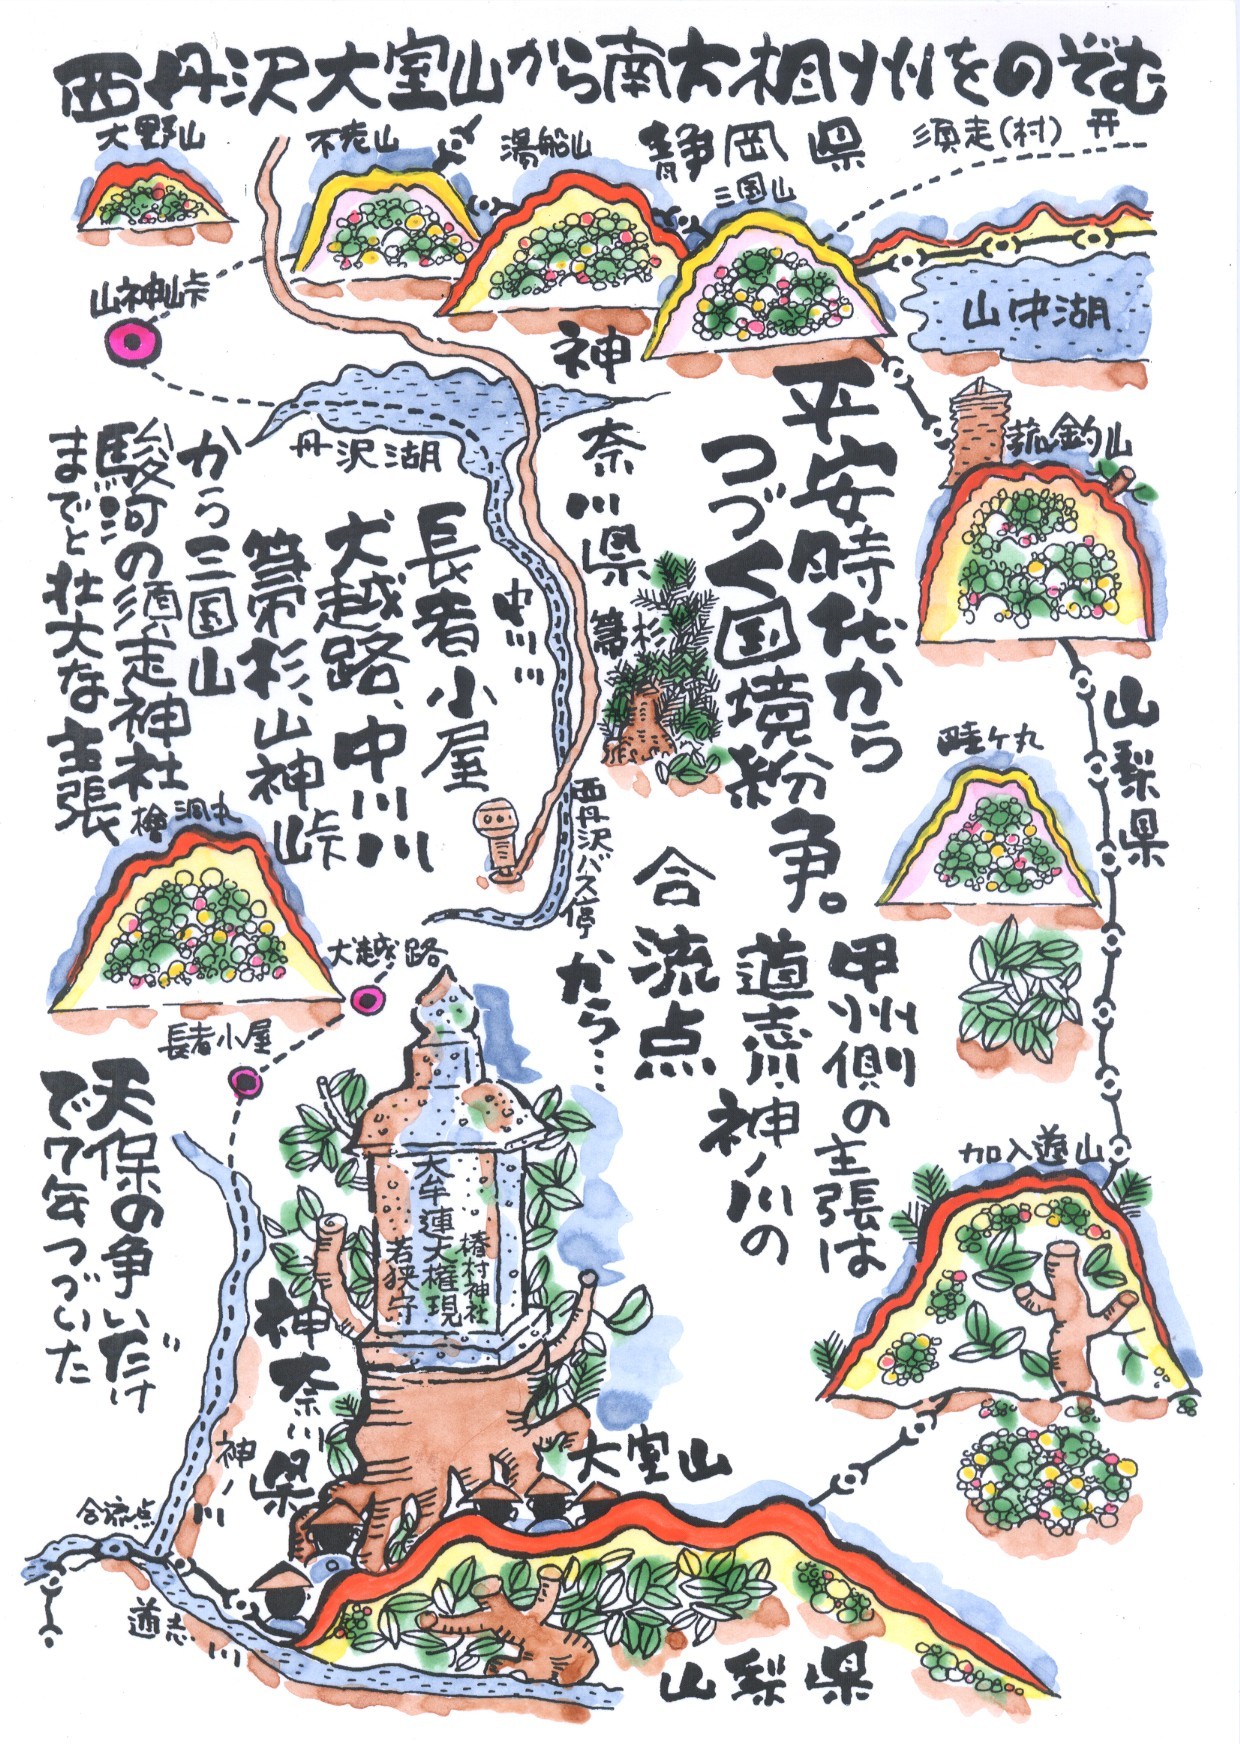 西丹沢大室山から南方相州をのぞむ
大野山
不老山
湯船山
静岡県
三国山
須走(村)
山中湖
山神峠
丹沢湖
神奈川県
菰釣山
山梨県
畦ケ丸
箒杉
中川川
西丹沢バス停
平安時代から
つづく国境紛争。
甲州側の主張は
道志川、神ノ川の
合流点
から…
長者小屋
犬越路、中川川
箒杉、山神峠
から三国山
駿河の須走神社
までと壮大な主張
檜洞丸
犬越路
長者小屋
天保の争いだけ
で7年つづいた
加入道山
椿村神社
大牟連大権現
若狭守
神奈川県
大室山
神ノ川
合流点
道志川
山梨県